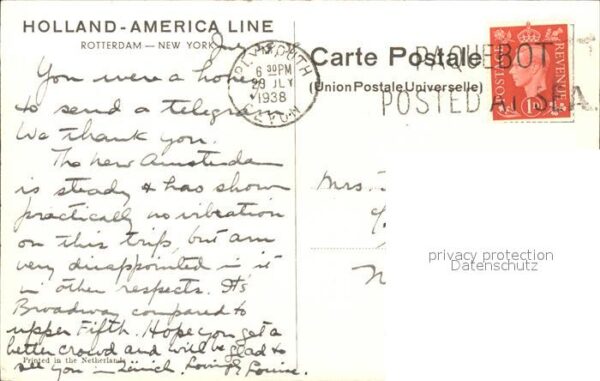 HOLLAND-AMERICA LINE
ROTTERDAM — NEW YORK
You were a honey
to send a telegram
We thank you.
The new Amsterdam
is steady & has shown
practically no vibration
on this trip, but am
very disappointed in it
in other respects. It's
Broadway compared to
upper Fifth. Hope you get a
better crowd and will be glad to
see you in Zürich. Lovingly Louise.
Printed in the Netherlands
PLYMOUTH
6 30 PM
JLY
1938
DEVON
Carte Postale
(Union Postale Universelle)
PAQUEBOT
POSTED AT SEA
POSTAGE
REVENUE
1D
Mrs.
privacy protection
Datenschutz